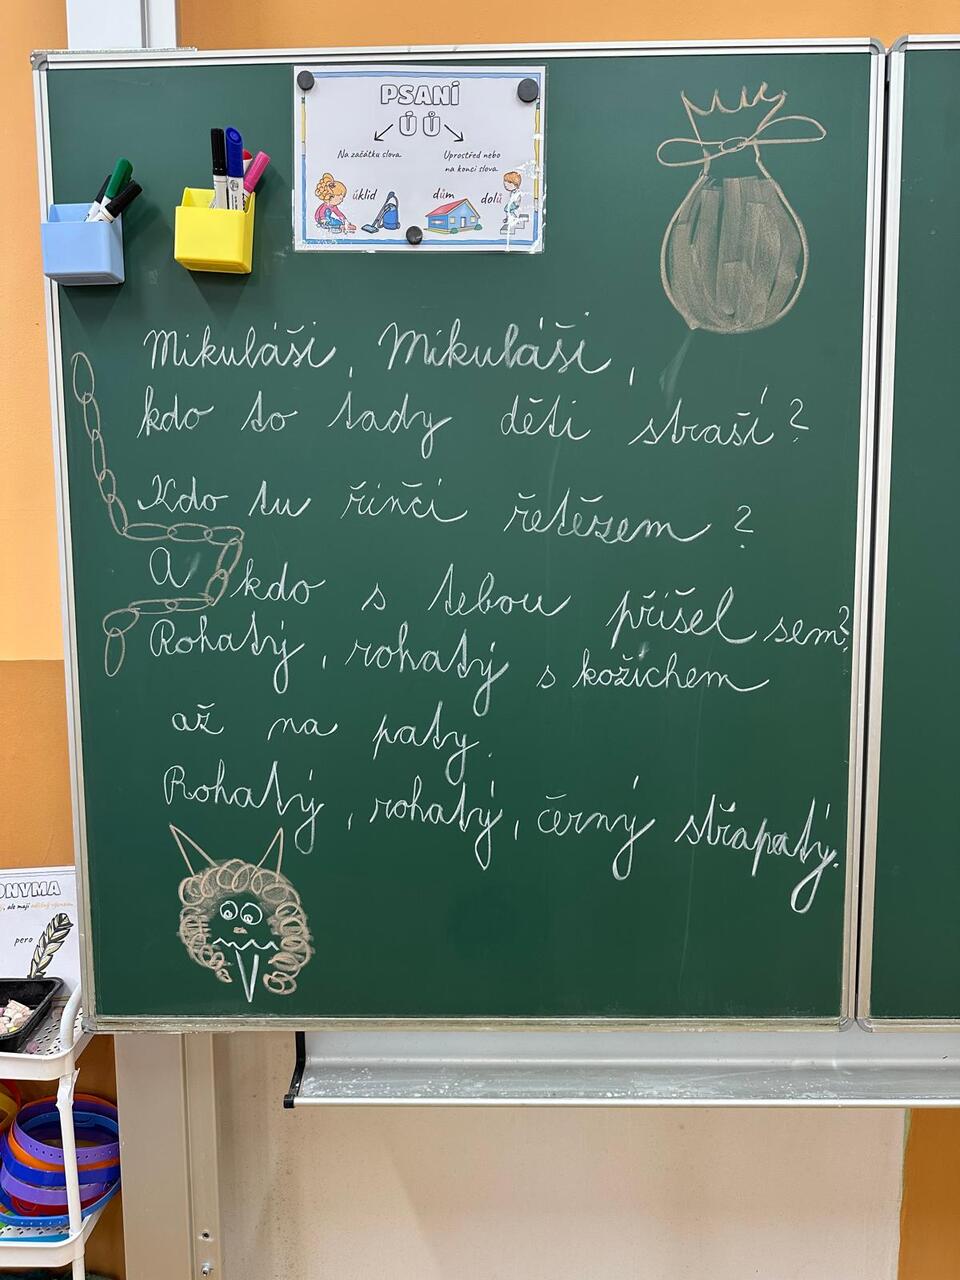 PSANÍ
Ú Ů
Na začátku slova
Uprostřed nebo
na konci slova
úklid
dům
dolů
Mikuláši, Mikuláši,
kdo to tady děti straší?
Kdo tu řinčí řetězem?
A kdo s tebou přišel sem?
Rohatý, rohatý s kožichem
až na paty.
Rohatý, rohatý, černý střapatý.
ONYMA
pero